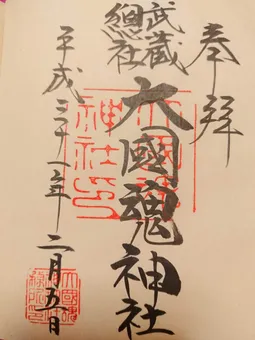 奉拜
武蔵
總社
大國魂神社
平成三十一年二月五日
大國魂
神社印